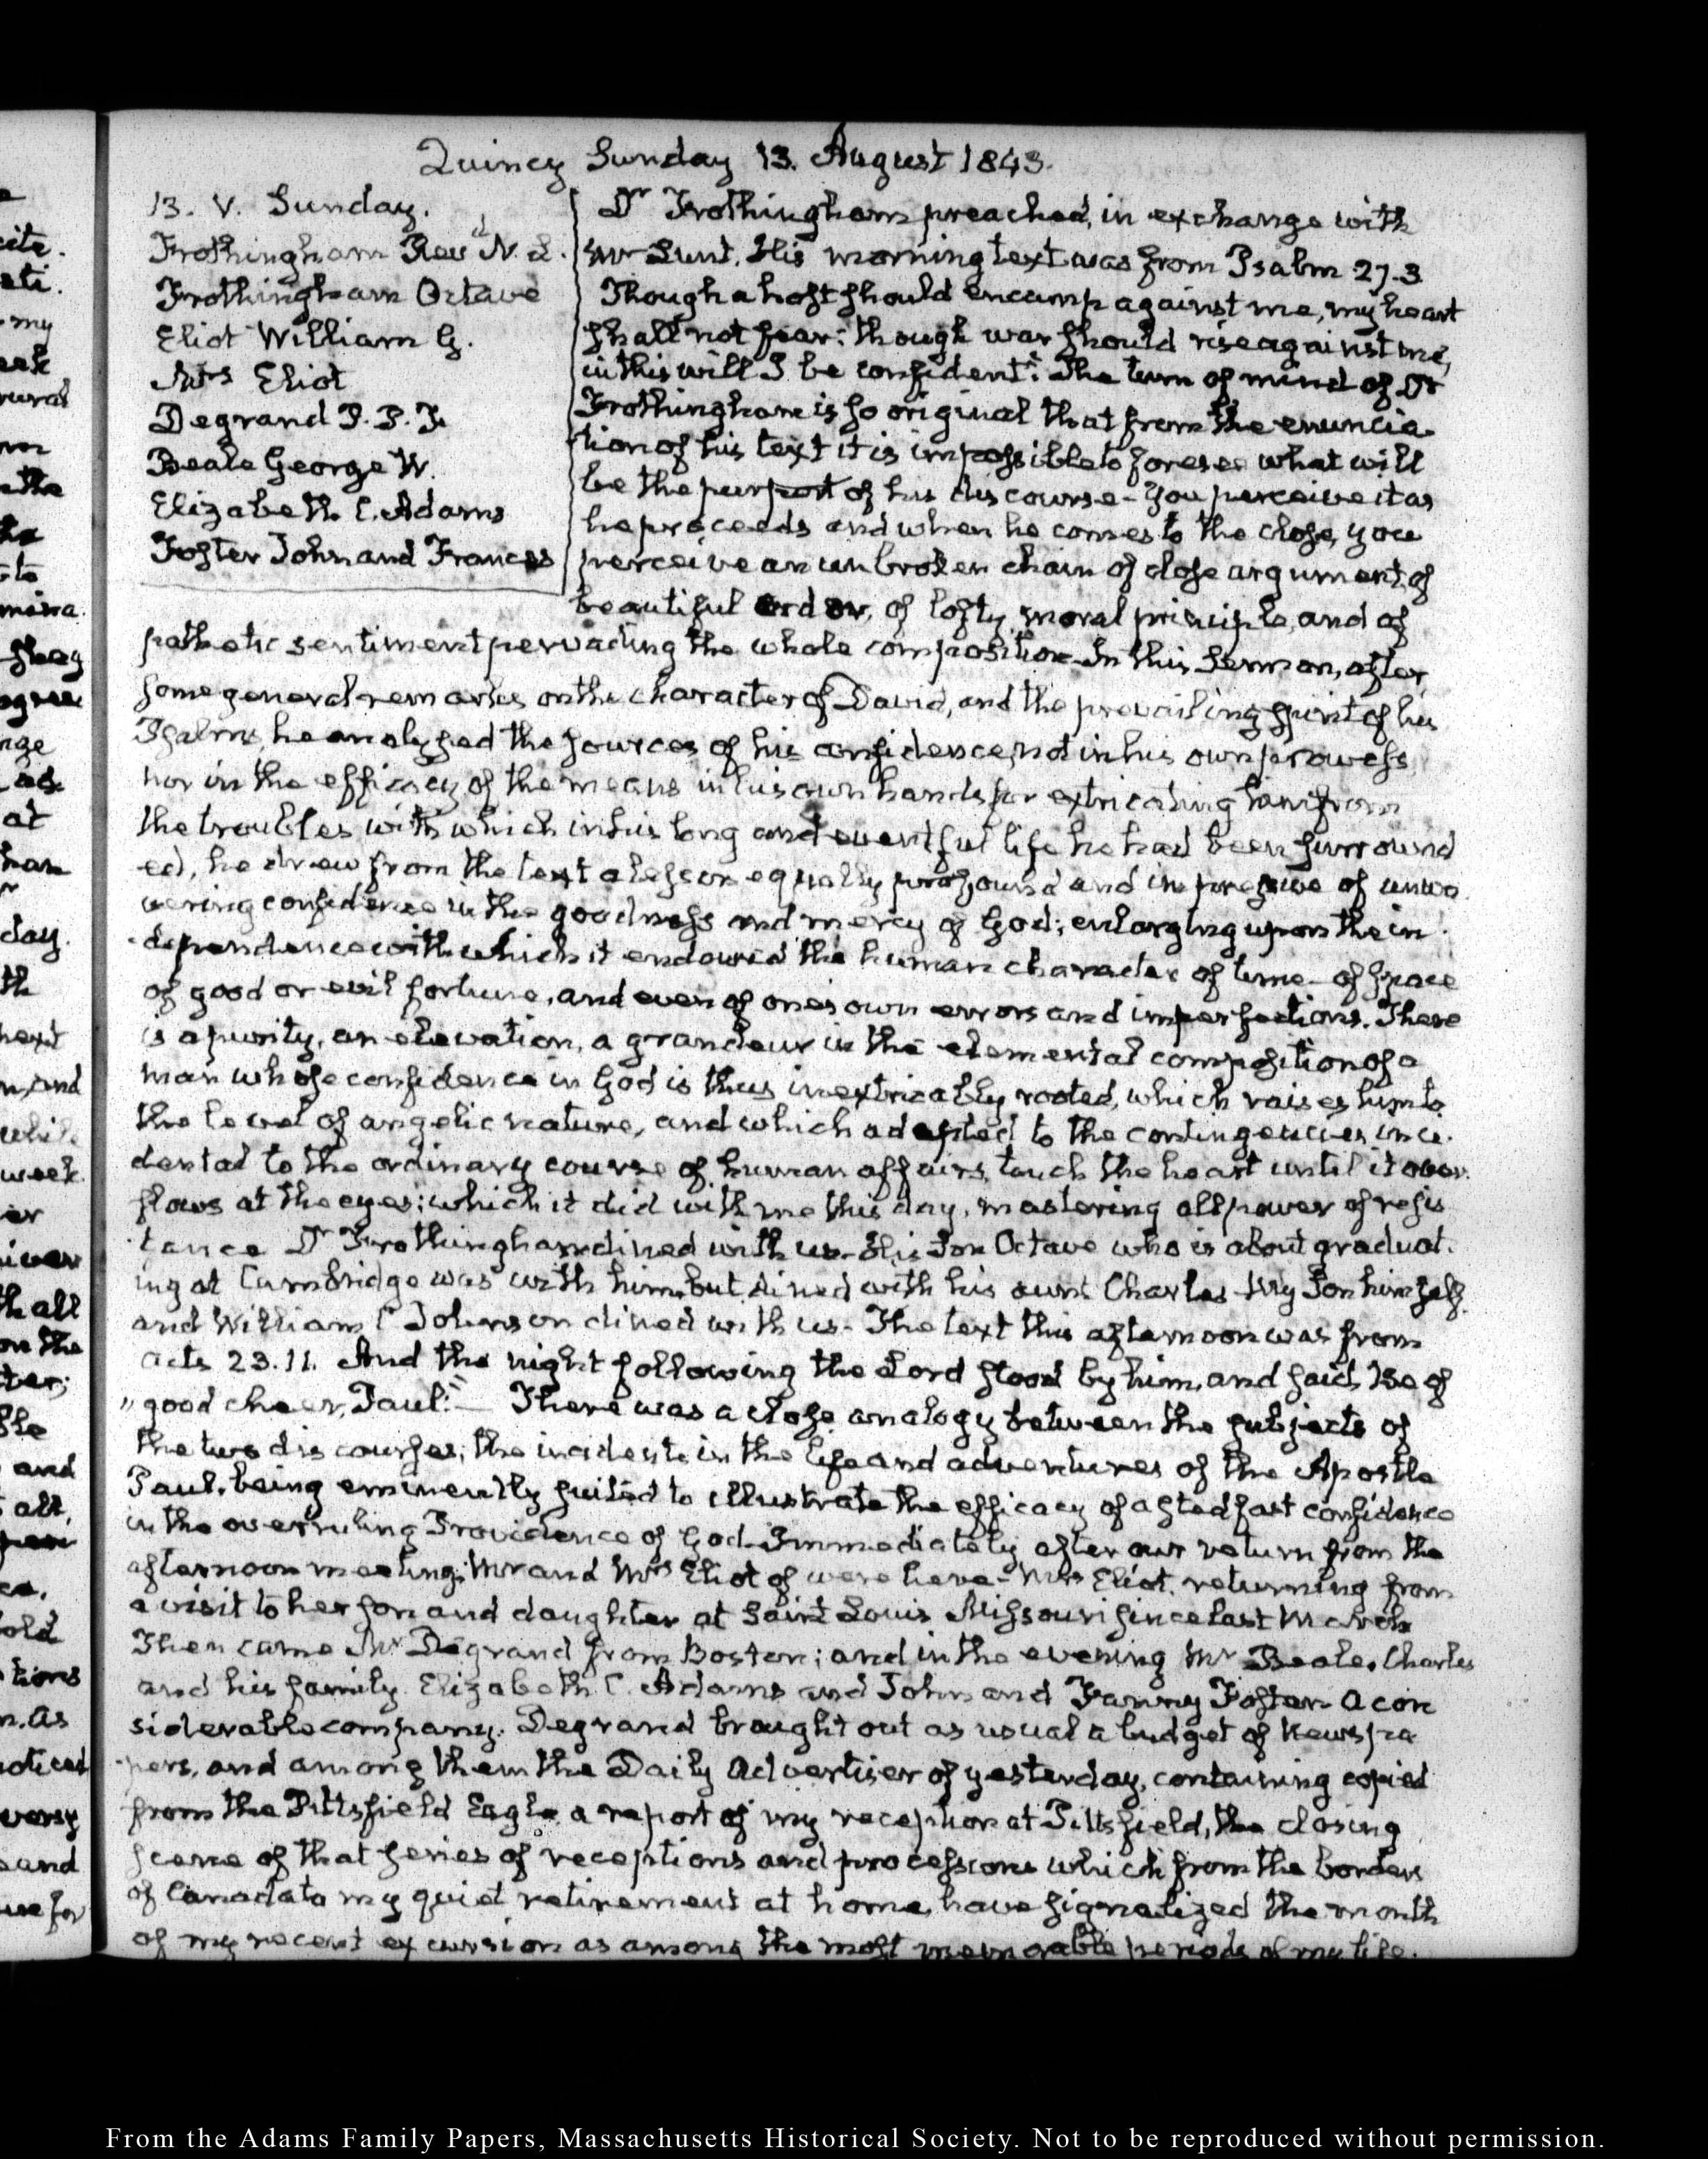 Quincy Sunday 13. August 1843.
13. V. Sunday.
Frothingham Revd N. L.
Frothingham Octave
Eliot William G.
Mrs Eliot
Degrand P. P. F.
Beale George W.
Elizabeth C. Adams
Foster John and Frances
Dr Frothingham preached, in exchange with
Mr Lunt. His morning text was from Psalm 27.3
Though a host should encamp against me, my heart
shall not fear: though war should rise against me,
in this will I be confident": The turn of mind of Dr
Frothingham is so original that from the enuncia
tion of his text it is impossible to foresee what will
be the purport of his discourse - You perceive it as
he proceeds and when he comes to the close, you
perceive an unbroken chain of close argument, of
beautiful order, of lofty, moral principle, and of
pathetic sentiment pervading the whole composition - In this Sermon, after
some general remarks on the character of David, and the prevailing spirit of his
Psalms, he analyzed the sources of his confidence, not in his own prowess
nor in the efficacy of the means in his own hands for extricating him from
the troubles with which in his long and eventful life he had been surround
ed, he drew from the text a lesson equally profound and impressive of unwa
vering confidence in the goodness and mercy of God; enlarging upon the in
dependence with which it endowed the human character of time - of space
of good or evil fortune, and even of one's own errors and imperfections. There
is a purity, an elevation, a grandeur in the elemental composition of a
man whose confidence in God is thus inextricably rooted, which raises him to
the level of angelic nature, and which adapted to the contingencies inci
dental to the ordinary course of human affairs, touch the heart until it over
flows at the eyes; which it did with me this day, mastering all power of resis
tance Dr Frothingham dined with us - His Son Octave who is about graduat
ing at Cambridge was with him, but dined with his aunt Charles - My Son himself
and William C Johnson dined with us - The text this afternoon was from
Acts 23.11. And the night following the Lord stood by him, and said, Be of
" good cheer, Paul:" — There was a close analogy between the subjects of
the two discourses; the incidents in the life and adventures of the Apostle
Paul, being eminently suited to illustrate the efficacy of a stedfast confidence
in the overruling Providence of God - Immediately after our return from the
afternoon meeting; Mr and Mrs Eliot of were here - Mrs Eliot, returning from
a visit to her son and daughter at Saint Louis Missouri since last March
Then came Mr Degrand from Boston; and in the evening Mr Beale, Charles
and his family. Elizabeth C. Adams and John and Fanny Foster - A con
siderable company. Degrand brought out as usual a budget of Newspa
pers, and among them the Daily Advertiser of yesterday, containing copied
from the Pittsfield Eagle a report of my reception at Pittsfield, the closing
scene of that series of receptions and processions which from the borders
of Canada to my quiet retirement at home, have signalized the month
of my recent excursion as among the most memorable periods of my life.
From the Adams Family Papers, Massachusetts Historical Society. Not to be reproduced without permission.